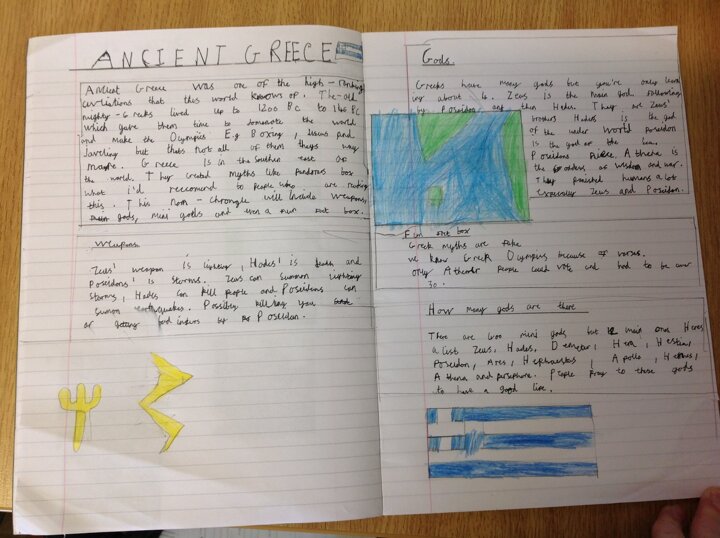 ANCIENT GREECE
Ancient Greece was one of the high-ranking
civiliations that this world knows of. The-old
mighty-Greeks lived up to 1200 BC to 146 BC
which gave them time to dominate the world
and make the Olympics E.g Boxing, Discus and
Javeling but thats not all of them theys way
more. Greece is in the southen east of
the world. They created myths like pandoras box
what i'd reccomend to people who are reading
this. This non-chrongle will include weapons,
gods, mini gods and even a fun fact box.
Weapons
Zeus' weapon is lighting, Hades' is death and
Poseidons' is storms. Zeus can summon lightning
storms, Hades can kill people and Poseidons can
sumon earthquakes. Possibly killing you
or getting bad injurs by Poseidon.
Gods.
Greeks have many gods but you're only learn
ing about 6. Zeus is the main god following
by Poseidon and then Hades. They are Zeus'
brothers Hades is the god
of the under world Poseidon
is the god of the sea.
Poseidons Athena is
the goddess of wisdom and war.
They punished humans a lot
Espessially Zeus and Poseidon.
Fun fact box
Greek myths are fake
we know Greek Olympics because of vases.
only Athens people could vote and had to be over
30.
How many gods are there
There are 600 mini gods but 12 main ones Heres
a list Zeus, Hades, Demeter, Hera, Hestia,
Poseidon, Ares, Hephaestus, Apollo, Hermes,
Athena and persephone. People pray to these gods
to have a good live.